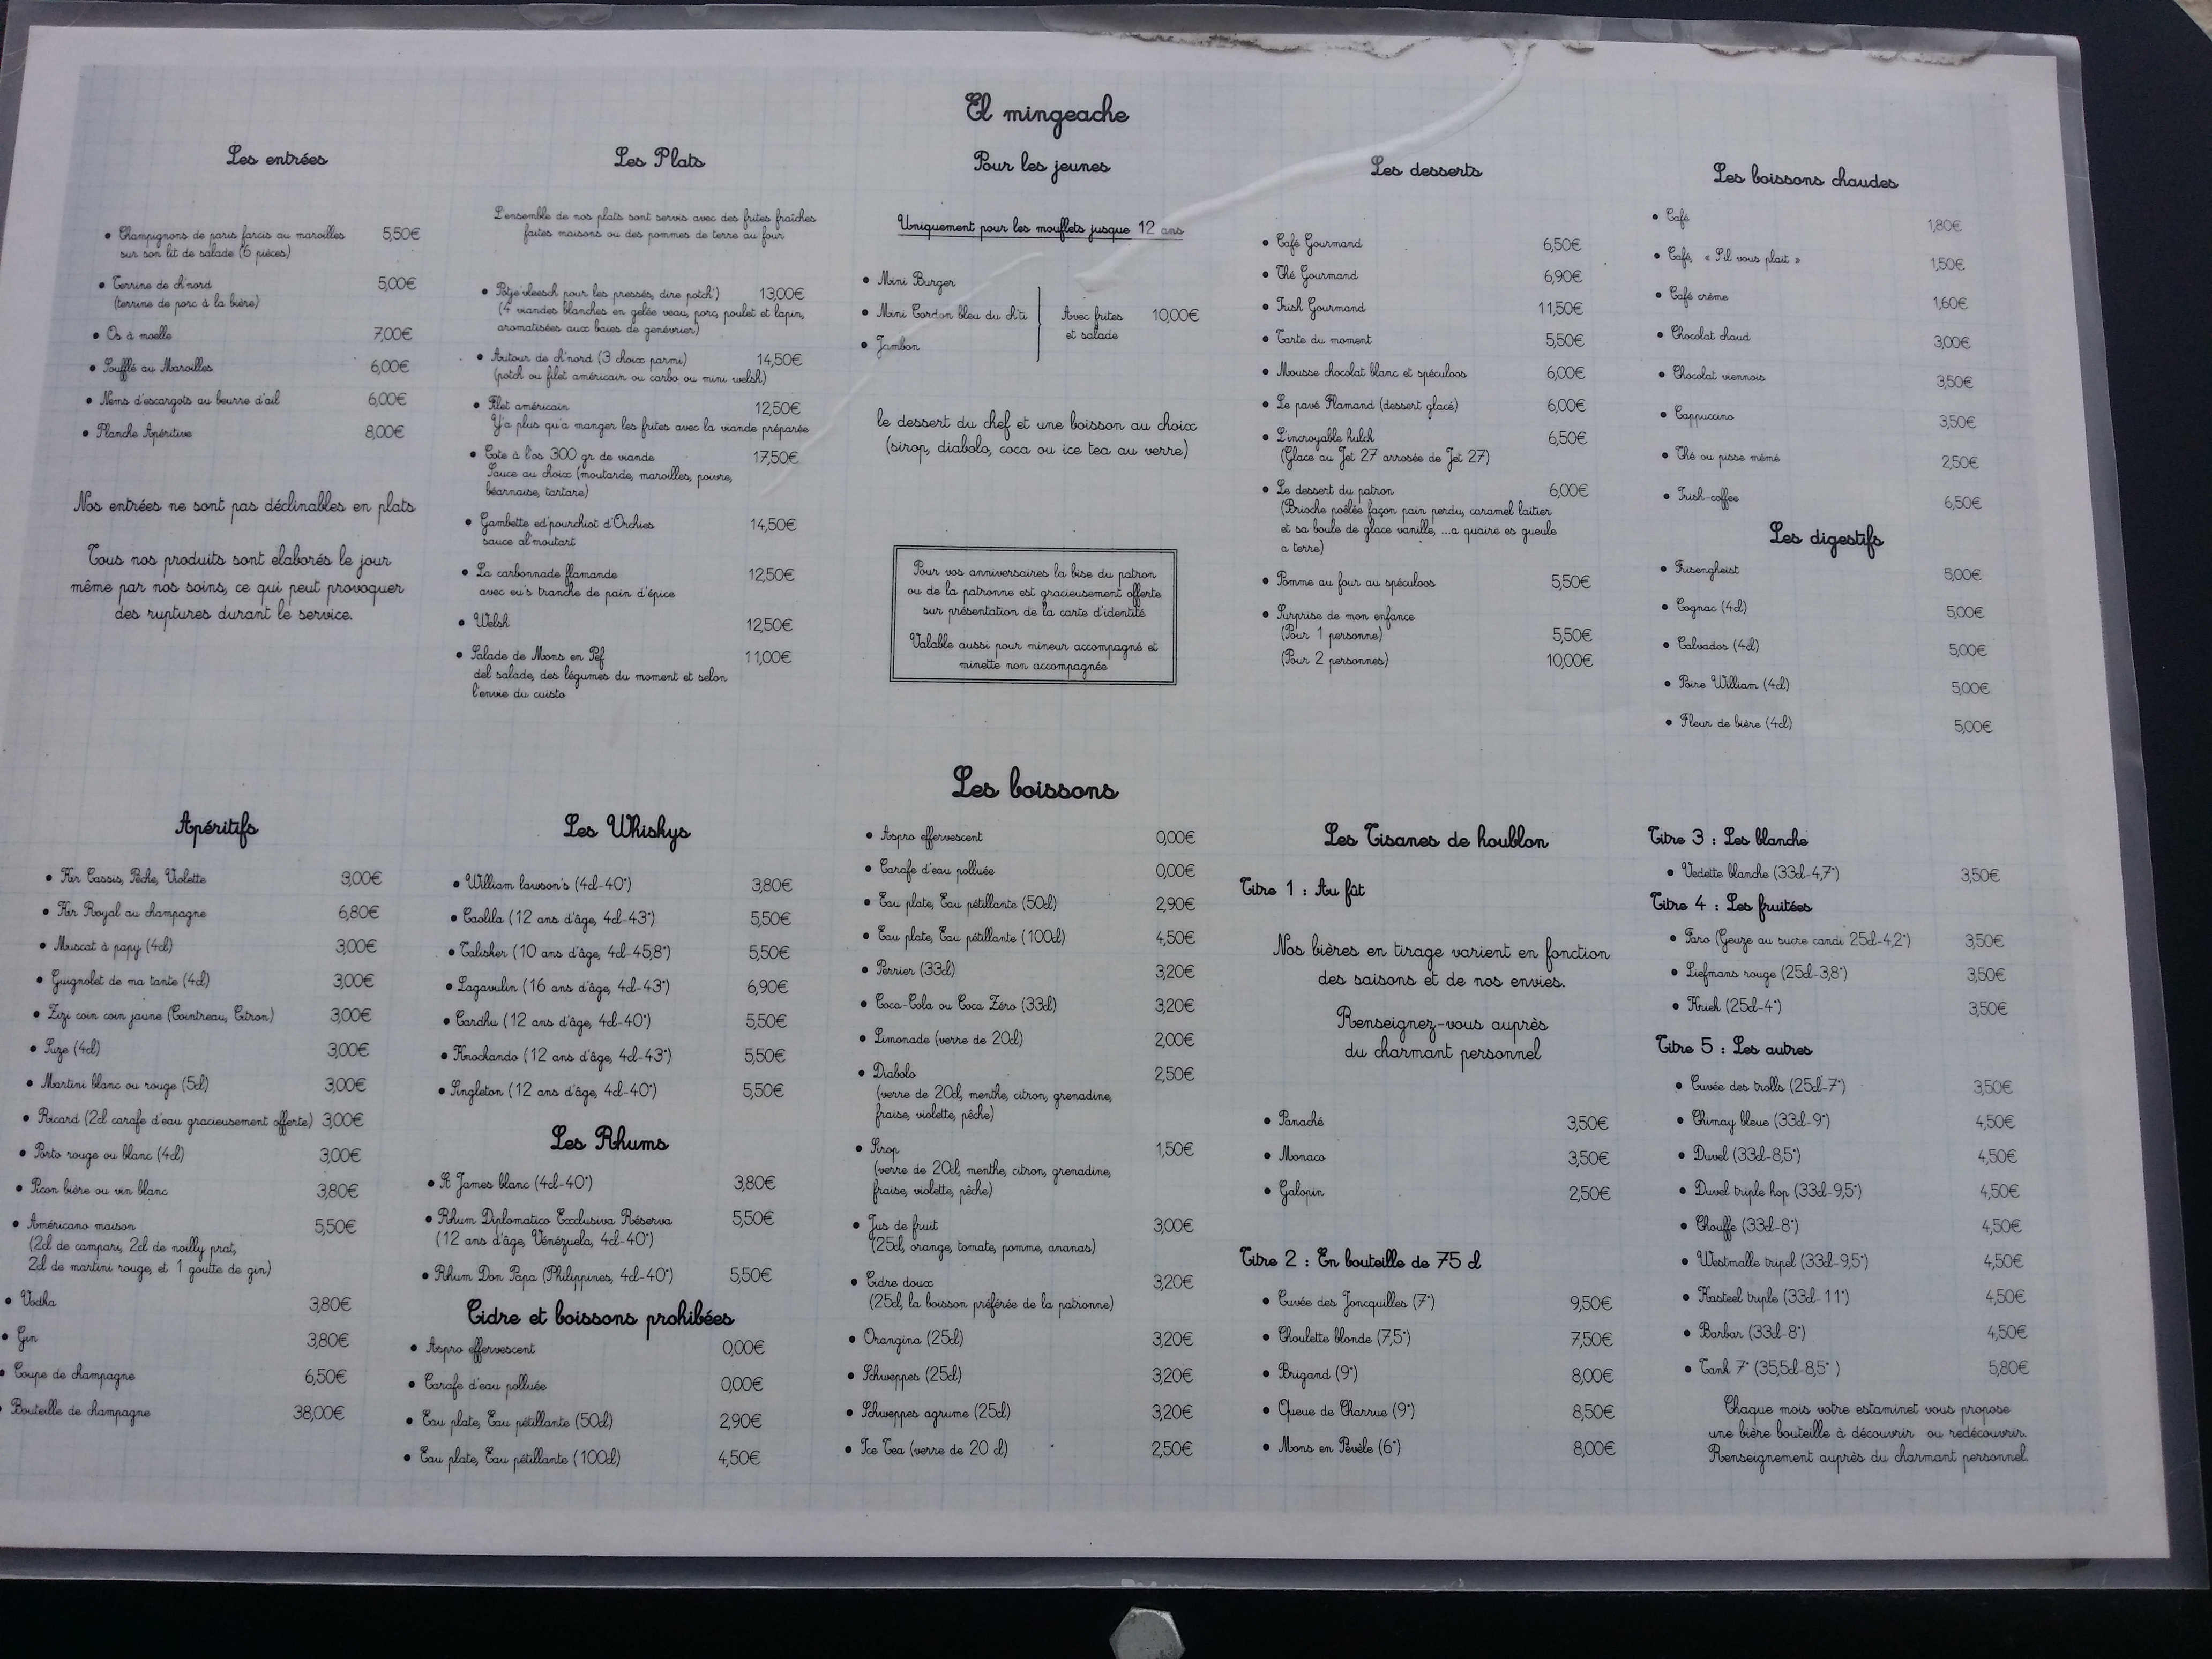 El mingeache
Les entrées
• Champignons de paris farcis au maroilles 5,50€
sur son lit de salade (6 pièces)
• Terrine de ch'nord 5,00€
(terrine de porc à la bière)
• Os à moelle 7,00€
• Soufflé au Maroilles 6,00€
• Nems d'escargots au beurre d'ail 6,00€
• Planche Apéritive 8,00€
Nos entrées ne sont pas déclinables en plats
Tous nos produits sont elaborés le jour
même par nos soins, ce qui peut provoquer
des ruptures durant le service.
Les Plats
L'ensemble de nos plats sont servis avec des frites fraîches
faites maisons ou des pommes de terre au four
• Potje'vleesch pour les pressés, dire potch') 13,00€
(4 viandes blanches en gelée veau, porc, poulet et lapin,
aromatisées aux baies de genévrier)
• Autour de ch'nord (3 choix parmi) 14,50€
(potch ou filet américain ou carbo ou mini welsh)
• Filet américain 12,50€
Y'a plus qu'a manger les frites avec la viande préparée
• Cote à l'os 300 gr de viande 17,50€
Sauce au choix (moutarde, maroilles, poivre,
béarnaise, tartare)
• Gambette ed'pourchiot d'Orchies 14,50€
sauce al'moutart
• La carbonnade flamande 12,50€
avec eu's tranche de pain d'épice
• Welsh 12,50€
• Salade de Mons en Pef 11,00€
del salade, des légumes du moment et selon
l'envie du cuisto
Pour les jeunes
Uniquement pour les mouflets jusque 12 ans
• Mini Burger
• Mini Cordon bleu du ch'ti
• Jambon
Avec frites 10,00€
et salade
le dessert du chef et une boisson au choix
(sirop, diabolo, coca ou ice tea au verre)
Pour vos anniversaires la bise du patron
ou de la patronne est gracieusement offerte
sur présentation de la carte d'identité
Valable aussi pour mineur accompagné et
minette non accompagnée
Les desserts
• Café Gourmand 6,50€
• Thé Gourmand 6,90€
• Irish Gourmand 11,50€
• Tarte du moment 5,50€
• Mousse chocolat blanc et spéculoos 6,00€
• Le pavé Flamand (dessert glacé) 6,00€
• L'incroyable hulck 6,50€
(Glace au Jet 27 arrosée de Jet 27)
• Le dessert du patron 6,00€
(Brioche poêlée façon pain perdu, caramel laitier
et sa boule de glace vanille, ...a quaire es gueule
a terre)
• Pomme au four au spéculoos 5,50€
• Surprise de mon enfance
(Pour 1 personne) 5,50€
(Pour 2 personnes) 10,00€
Les boissons chaudes
• Café 1,80€
• Café, « S'il vous plait » 1,50€
• Café crème 1,60€
• Chocolat chaud 3,00€
• Chocolat viennois 3,50€
• Cappuccino 3,50€
• Thé ou pisse mémé 2,50€
• Irish-coffee 6,50€
Les digestifs
• Frisengheist 5,00€
• Cognac (4cl) 5,00€
• Calvados (4cl) 5,00€
• Poire William (4cl) 5,00€
• Fleur de bière (4cl) 5,00€
Les boissons
Apéritifs
• Kir Cassis, Pêche, Violette 3,00€
• Kir Royal au champagne 6,80€
• Muscat à papy (4cl) 3,00€
• Guignolet de ma tante (4cl) 3,00€
• Zizi coin coin jaune (Cointreau, Citron) 3,00€
• Suze (4cl) 3,00€
• Martini blanc ou rouge (5cl) 3,00€
• Ricard (2cl carafe d'eau gracieusement offerte) 3,00€
• Porto rouge ou blanc (4cl) 3,00€
• Picon bière ou vin blanc 3,80€
• Américano maison 5,50€
(2cl de campari, 2cl de noilly prat,
2cl de martini rouge, et 1 goutte de gin)
• Vodka 3,80€
• Gin 3,80€
• Coupe de champagne 6,50€
• Bouteille de champagne 38,00€
Les Whiskys
• William lawson's (4cl-40°) 3,80€
• Caolila (12 ans d'âge, 4cl-43°) 5,50€
• Talisker (10 ans d'âge, 4cl-45,8°) 5,50€
• Lagavulin (16 ans d'âge, 4cl-43°) 6,90€
• Cardhu (12 ans d'âge, 4cl-40°) 5,50€
• Knockando (12 ans d'âge, 4cl-43°) 5,50€
• Singleton (12 ans d'âge, 4cl-40°) 5,50€
Les Rhums
• St James blanc (4cl-40°) 3,80€
• Rhum Diplomatico Exclusiva Réserva 5,50€
(12 ans d'âge, Vénézuela, 4cl-40°)
• Rhum Don Papa (Philippines, 4cl-40°) 5,50€
Cidre et boissons prohibées
• Aspro effervescent 0,00€
• Carafe d'eau polluée 0,00€
• Eau plate, Eau pétillante (50cl) 2,90€
• Eau plate, Eau pétillante (100cl) 4,50€
• Aspro effervescent 0,00€
• Carafe d'eau polluée 0,00€
• Eau plate, Eau pétillante (50cl) 2,90€
• Eau plate, Eau pétillante (100cl) 4,50€
• Perrier (33cl) 3,20€
• Coca-Cola ou Coca Zéro (33cl) 3,20€
• Limonade (verre de 20cl) 2,00€
• Diabolo 2,50€
(verre de 20cl, menthe, citron, grenadine,
fraise, violette, pêche)
• Sirop 1,50€
(verre de 20cl, menthe, citron, grenadine,
fraise, violette, pêche)
• Jus de fruit 3,00€
(25cl, orange, tomate, pomme, ananas)
• Cidre doux 3,20€
(25cl, la boisson préférée de la patronne)
• Orangina (25cl) 3,20€
• Schweppes (25cl) 3,20€
• Schweppes agrume (25cl) 3,20€
• Ice Tea (verre de 20 cl) 2,50€
Les Tisanes de houblon
Titre 1 : Au fût
Nos bières en tirage varient en fonction
des saisons et de nos envies.
Renseignez-vous auprès
du charmant personnel
• Panaché 3,50€
• Monaco 3,50€
• Galopin 2,50€
Titre 2 : En bouteille de 75 cl
• Cuvée des Joncquilles (7°) 9,50€
• Choulette blonde (7,5°) 7,50€
• Brigand (9°) 8,00€
• Queue de Charrue (9°) 8,50€
• Mons en Pévèle (6°) 8,00€
Titre 3 : Les blanche
• Vedette blanche (33cl-4,7°) 3,50€
Titre 4 : Les fruitées
• Faro (Geuze au sucre candi 25cl-4,2°) 3,50€
• Liefmans rouge (25cl-3,8°) 3,50€
• Kriek (25cl-4°) 3,50€
Titre 5 : Les autres
• Cuvée des trolls (25cl-7°) 3,50€
• Chimay bleue (33cl-9°) 4,50€
• Duvel (33cl-8,5°) 4,50€
• Duvel triple hop (33cl-9,5°) 4,50€
• Chouffe (33cl-8°) 4,50€
• Westmalle tripel (33cl-9,5°) 4,50€
• Kasteel triple (33cl-11°) 4,50€
• Barbar (33cl-8°) 4,50€
• Tank 7° (35,5cl-8,5° ) 5,80€
Chaque mois votre estaminet vous propose
une bière bouteille à découvrir ou redécouvrir.
Renseignement auprès du charmant personnel.